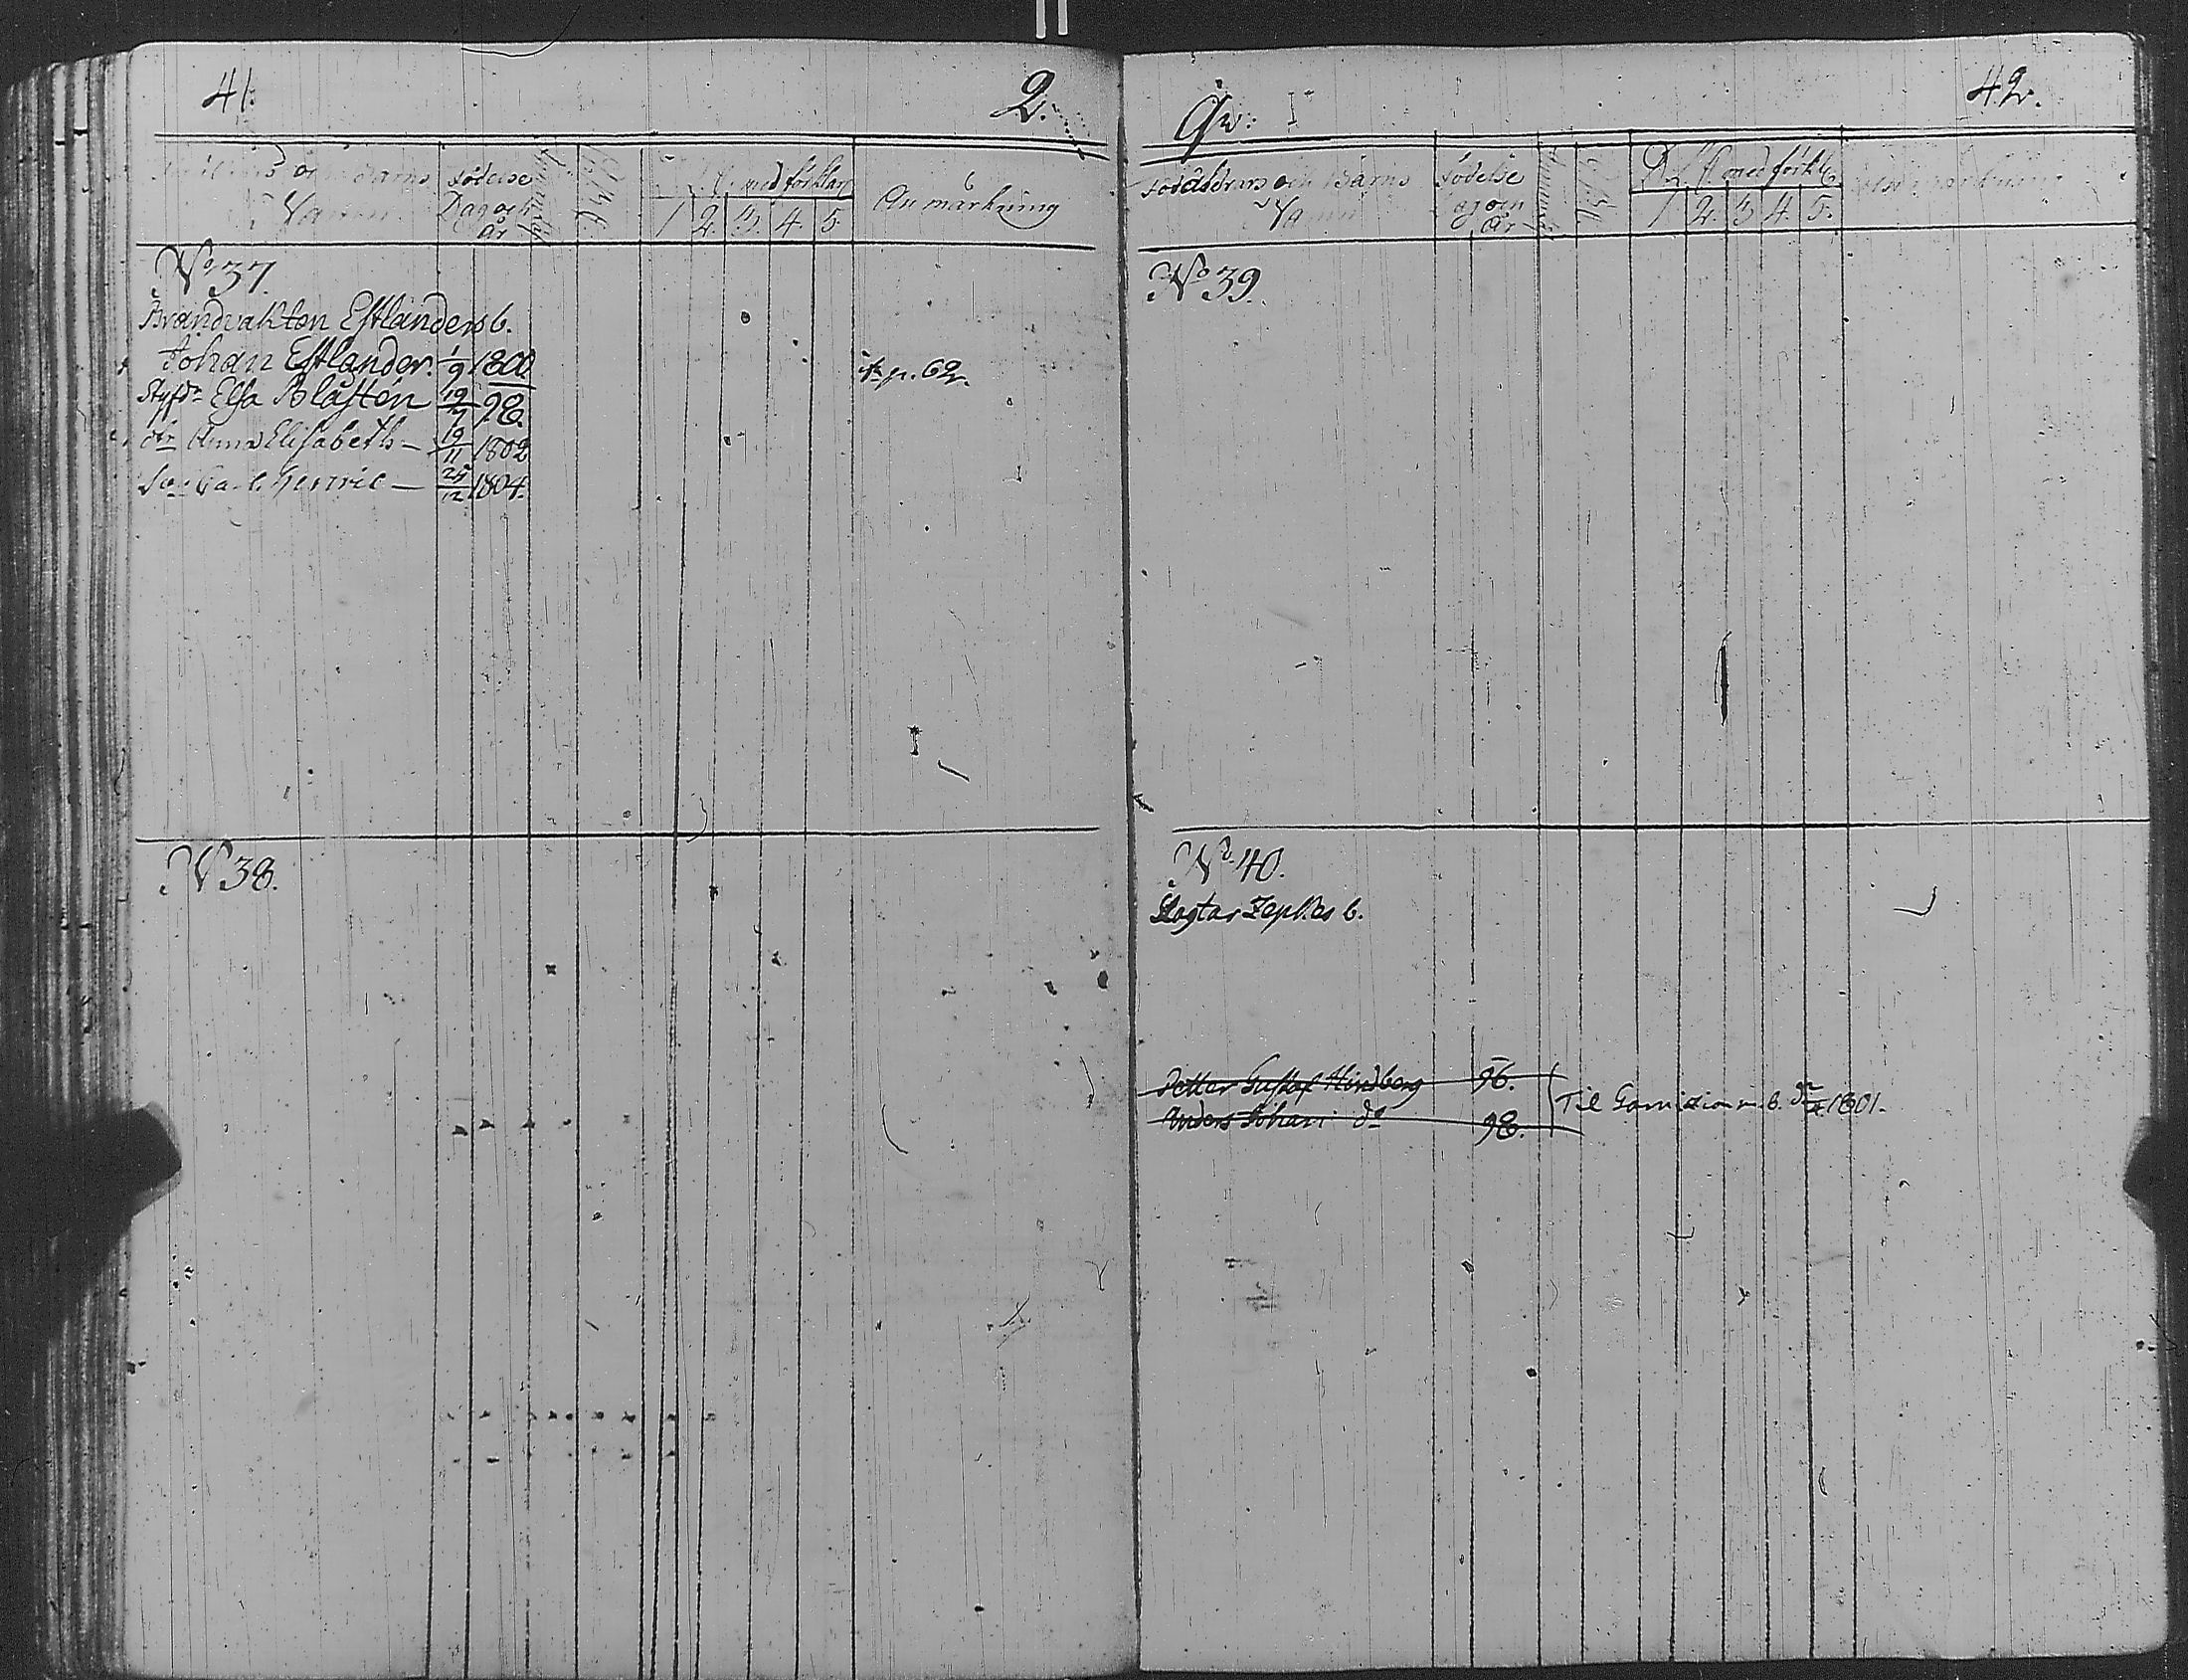 41.
2.
och Barns
Namn
Födelse
Dag och
år
med förklar
1 2. 3. 4. 5.
Anmärkning
No 37.
Brandvakten Estlanders b.
Johan Estlander. 1/9 1800
se p. 62.
Styfdr Elsa Blåsten 19/7 98.
dr Anna Elisabeth — 19/11 1802
Son Carl Henric — 25/12 1804.
No 38.
Qv: I
42.
Föräldrars och Barns
Namn
Födelse
Dag och
år
med förkl.
1 2. 3 4. 5.
Anmärkning
No 39.
No 40.
Slagtar Zepkes b.
Petter Gustaf Hindberg 96.
Anders Johan do 98.
Til b. 1801.